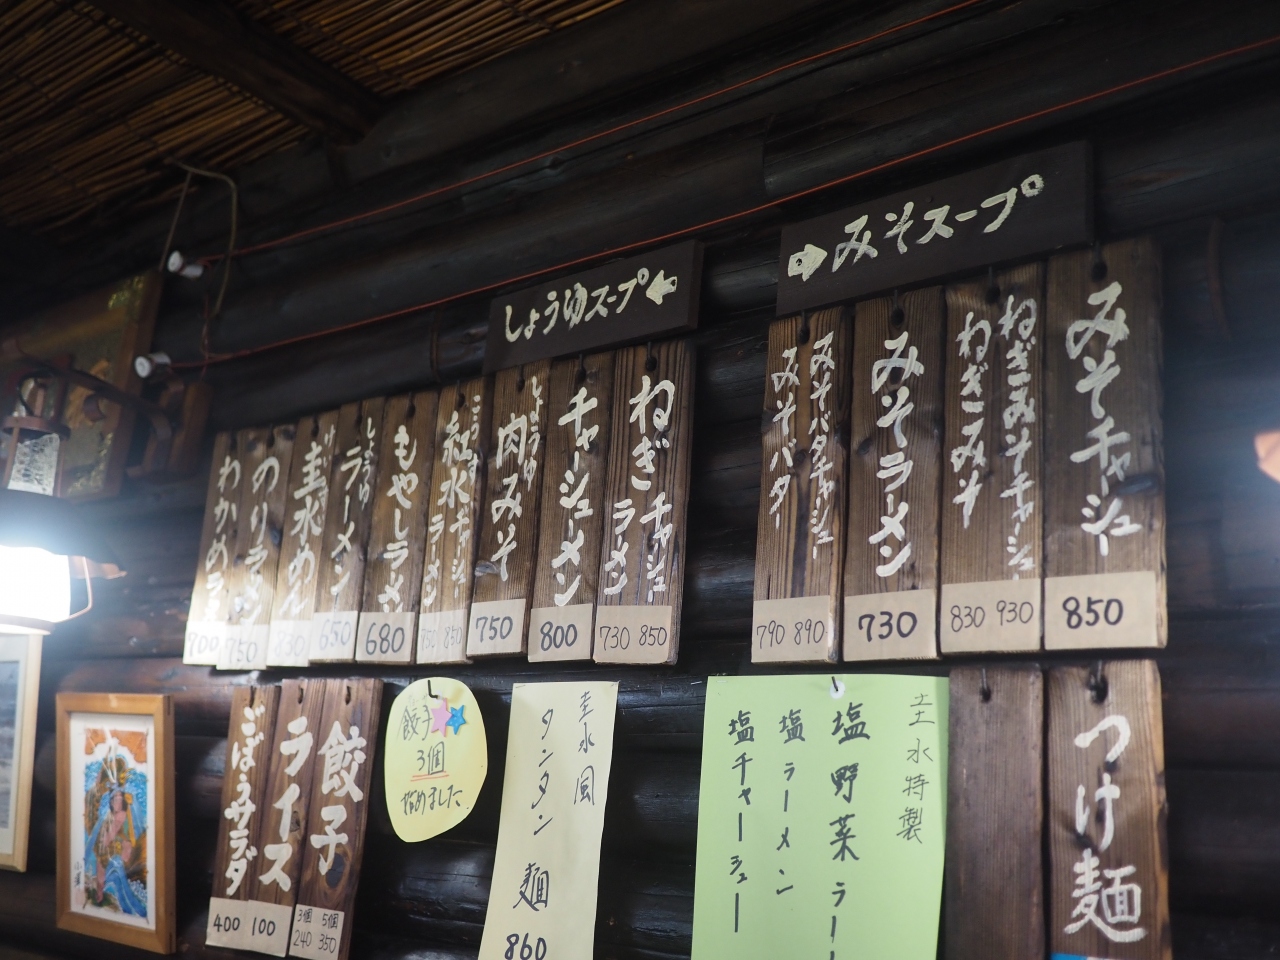 みそスープ
みそチャーシュー
850
ねぎみそチャーシュー
ねぎみそ
830 930
みそラーメン
730
みそバタチャーシュー
みそバター
790 890
しょうゆスープ
ねぎチャーシュー
ラーメン
730 850
チャーシューメン
800
しょうゆ
肉みそ
750
チャーシュー
ラーメン
850
もやしラーメン
680
しょうゆ
ラーメン
650
圭水めん
830
のりラーメン
750
わかめラ
700
つけ麺
圭水特製
塩野菜ラー
塩ラーメン
塩チャーシュー
圭水風
タンタン麺
860
餃子
3個
始めました
餃子
3個 5個
240 350
ライス
100
ごぼうサラダ
400